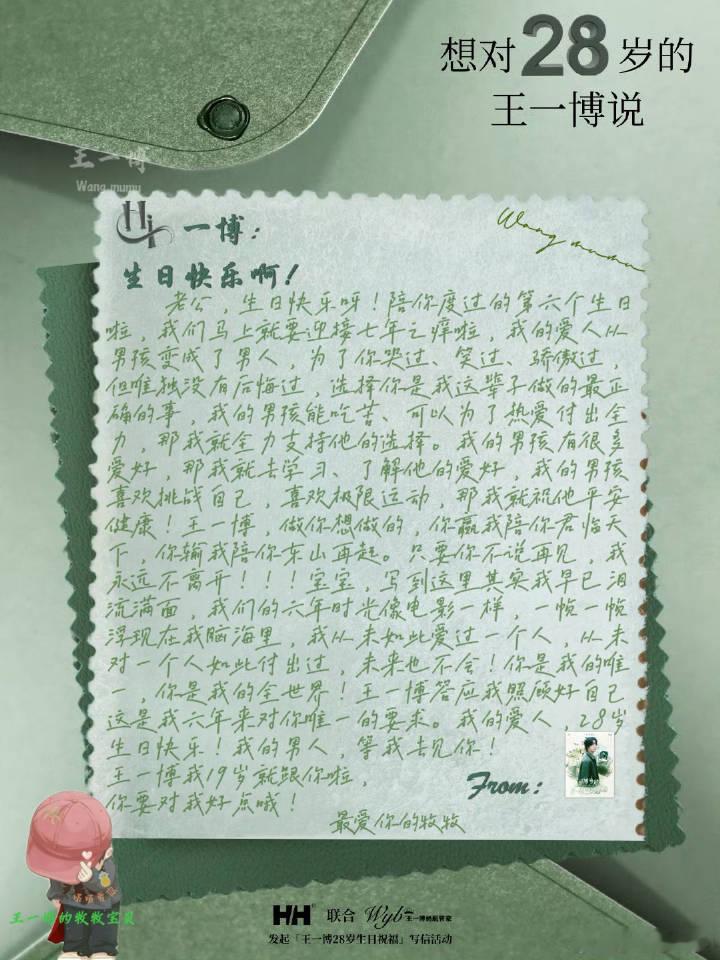 想对28岁的
王一博说
王一博
Wang mumu
Hi 一博：
Wang mumu
生日快乐啊！
老公，生日快乐呀！陪你度过的第六个生日
啦，我们马上就要迎接七年之痒啦，我的爱人从
男孩变成了男人，为了你哭过、笑过、骄傲过，
但唯独没有后悔过，选择你是我这辈子做的最正
确的事，我的男孩能吃苦、可以为了热爱付出全
力，那我就全力支持他的选择。我的男孩有很多
爱好，那我就去学习、了解他的爱好，我的男孩
喜欢挑战自己，喜欢极限运动，那我就祝他平安
健康！王一博，做你想做的，你赢我陪你君临天
下，你输我陪你东山再起。只要你不说再见，我
永远不离开！！！宝宝，写到这里其实我早已泪
流满面，我们的六年时光像电影一样，一帧一帧
浮现在我脑海里，我从未如此爱过一个人，从未
对一个人如此付出过，未来也不会！你是我的唯
一，你是我的全世界！王一博答应我照顾好自己
这是我六年来对你唯一的要求。我的爱人，28岁
生日快乐！我的男人，等我去见你！
王一博我19岁就跟你啦，
你要对我好点哦！
From：
最爱你的牧牧
王一博的牧牧宝贝
HH 联合 Wyb 王一博的航管家
发起「王一博28岁生日祝福」写信活动